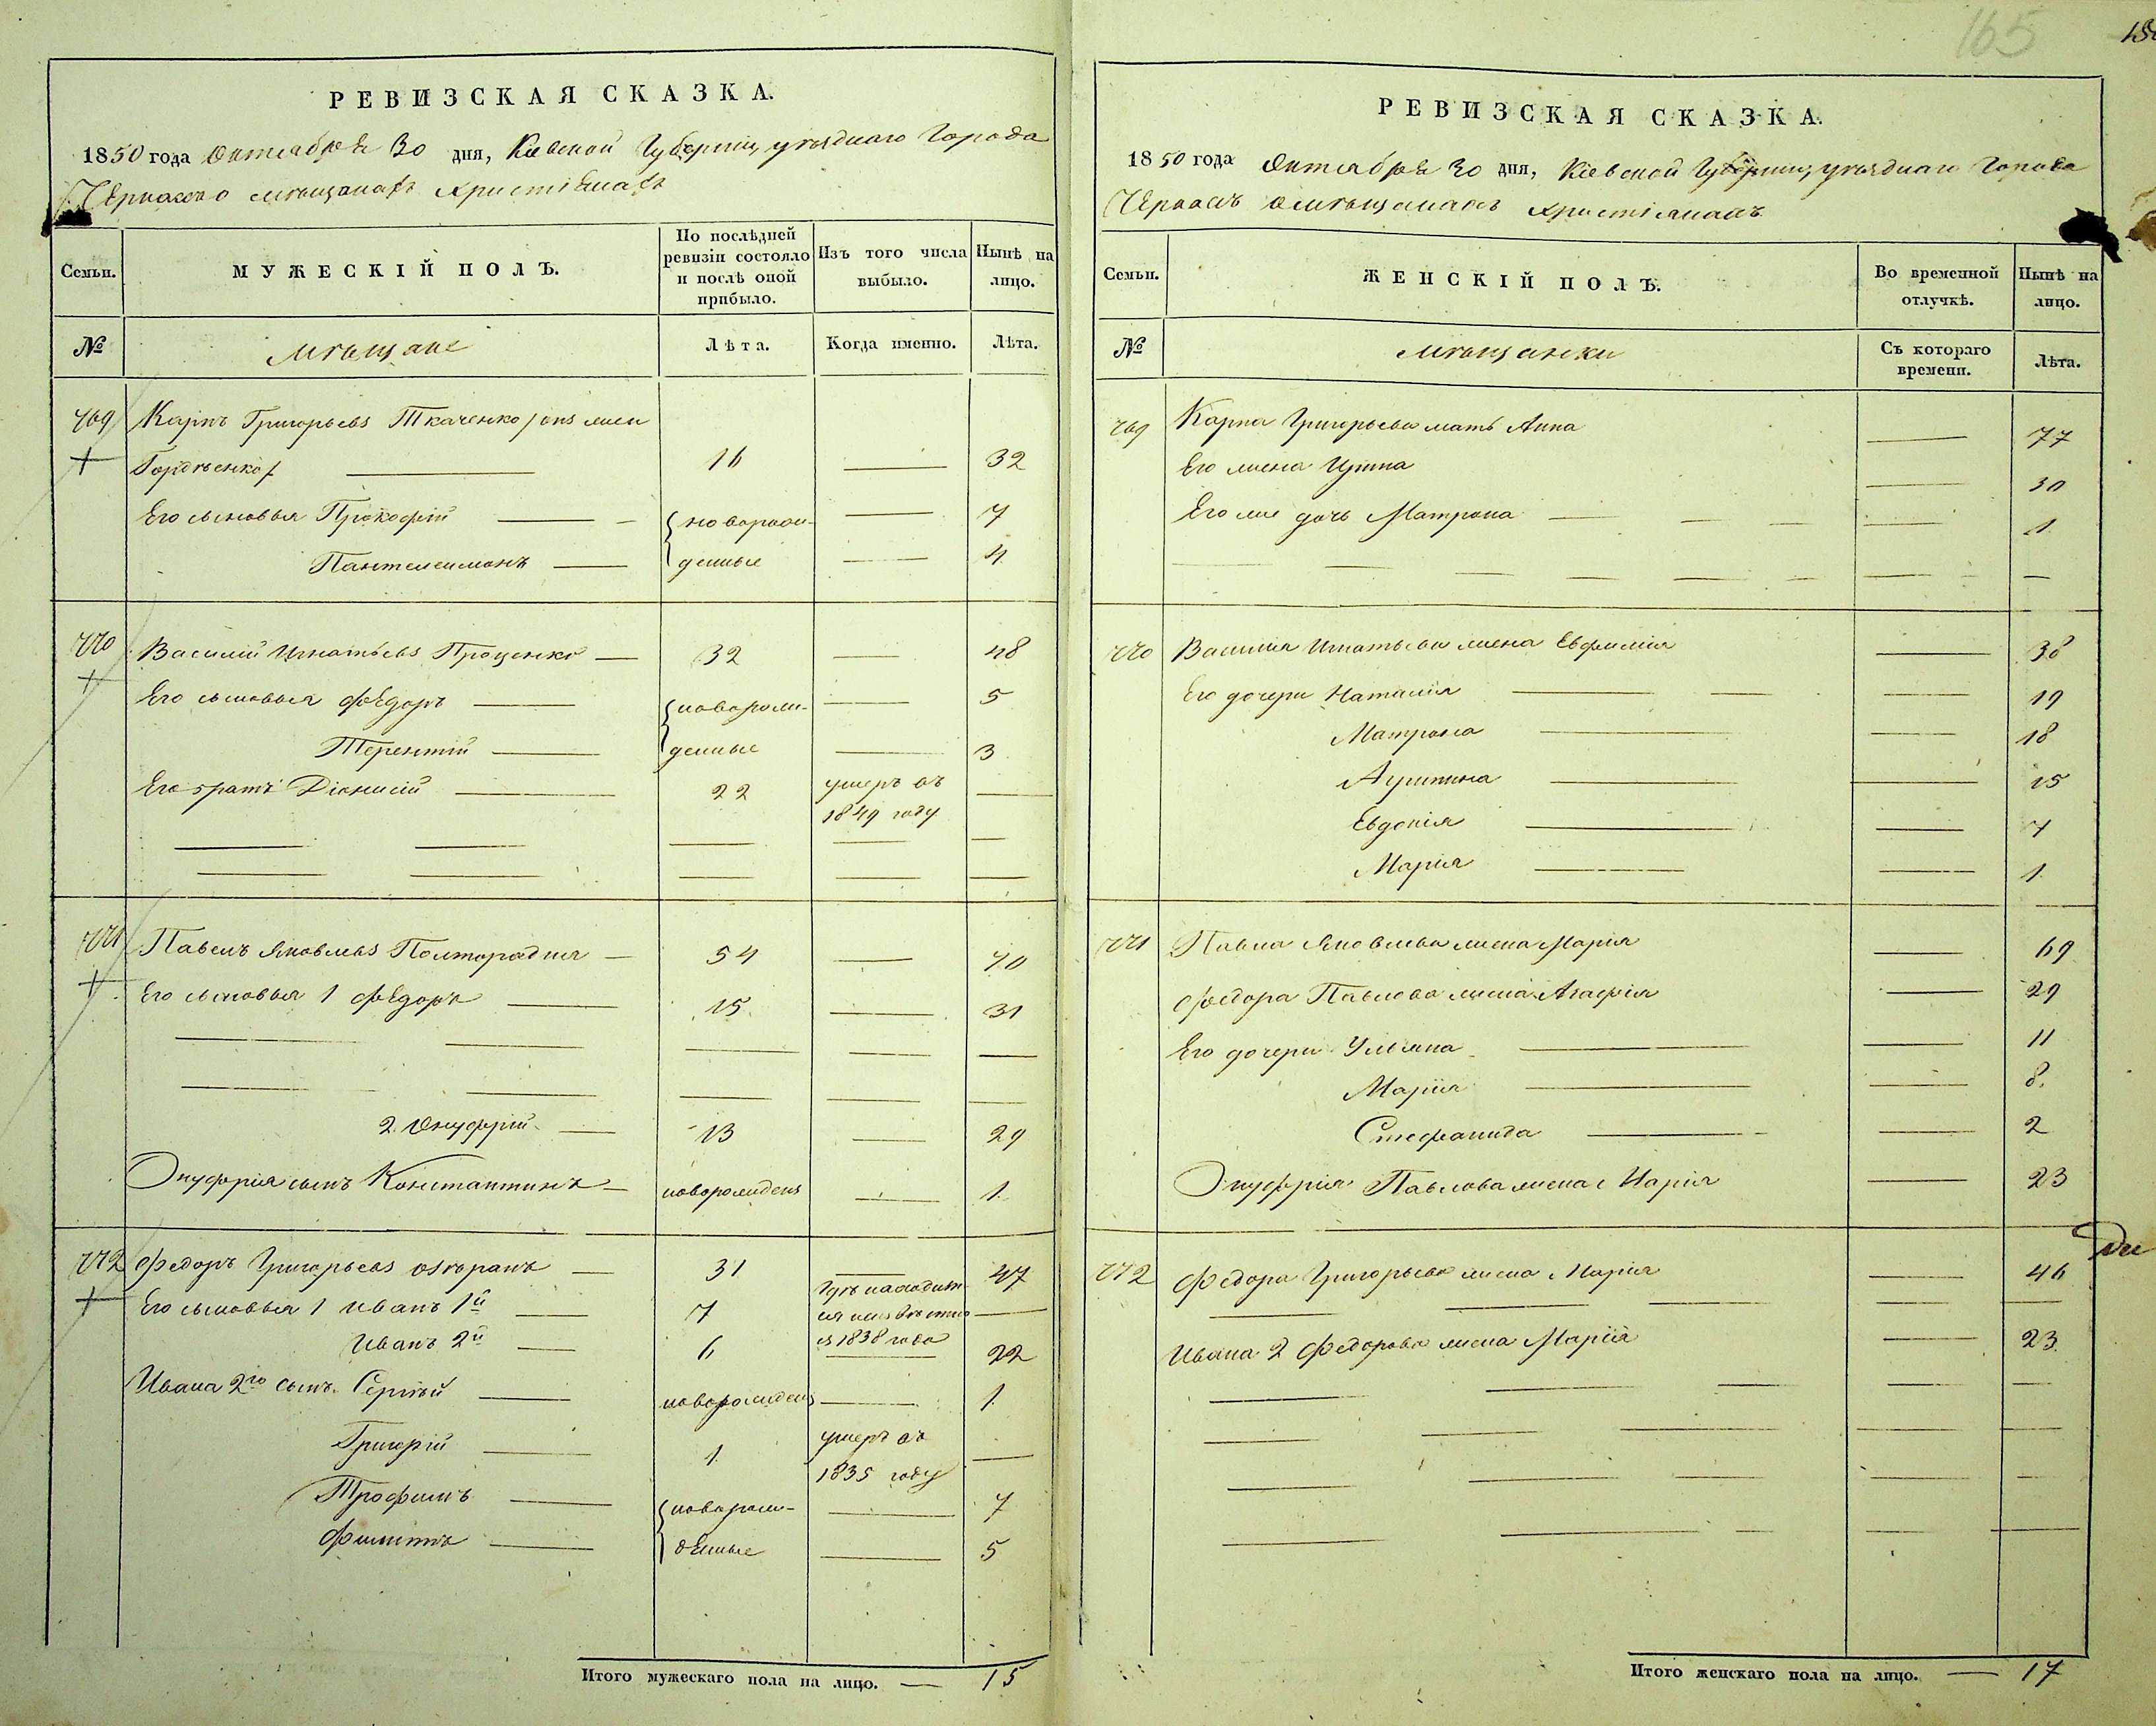 165
РЕВИЗСКАЯ СКАЗКА.
1850 года Октября 30 дня, Киевской Губерніи, уѣзднаго Города
Черкасъ о мѣщанахъ христіянахъ
Семьи.
МУЖЕСКІЙ ПОЛЪ.
По послѣдней ревизіи состояло и послѣ оной прибыло.
Изъ того числа выбыло.
Нынѣ на лицо.
№
мѣщане
Лѣта.
Когда именно.
Лѣта.
769 Карпъ Григорьевъ Ткаченко /онъ жеи
Гордѣенко/ — 16 — 32
Его сыновья Прокофій — новорож- — 7
Пантелеимонъ — денные — 4
770 Василий Игнатьевъ Проценко — 32 — 48
Его сыновья Федоръ — новорож- — 5
Терентій — денные — 3
Его братъ Діонисій — 22 умеръ въ —
1849 году
771 Павелъ Яковлевъ Полторадня — 54 — 70
Его сыновья 1 Федоръ — 15 — 31
2. Онуфрій — 13 — 29
Онуфрія сынъ Константинъ — новорожденъ — 1
772 Федоръ Григорьевъ — 31 — 47
Его сыновья 1 Иванъ 1й — 7 гдѣ находит-
ся неизвѣстно —
съ 1838 года
Иванъ 2й — 6 — 22
Ивана 2го сынъ Сергѣй — новорожденъ — 1
Григорій — 1 умеръ въ —
1835 году
Трофимъ — новорож- — 7
Филиппъ — денные — 5
Итого мужескаго пола на лицо. — 15
РЕВИЗСКАЯ СКАЗКА.
1850 года Октября 30 дня, Кіевской Губерніи, уѣзднаго Города
Черкасъ о мѣщанахъ христіянахъ
Семьи.
ЖЕНСКІЙ ПОЛЪ.
Во временной отлучкѣ.
Нынѣ на лицо.
№
мѣщанки
Съ котораго времени.
Лѣта.
769 Карпа Григорьева мать Анна — 77
Его жена — 30
Его же дочь Матрона — 1
770 Василия Игнатьева жена Евфимія — 38
Его дочери Наталія — 19
Матрона — 18
— 15
Евдокія — 7
Марія — 1
771 Павла Яковлева жена Марія — 69
Федора Павлова жена Агафія — 29
Его дочери Ульяна — 11
Марія — 8.
Стефанида — 2
Онуфрія Павлова жена Марія — 23
772 Федора Григорьева жена Марія — 46
Ивана 2 Федорова жена Марія — 23
Итого женскаго пола на лицо. — 17